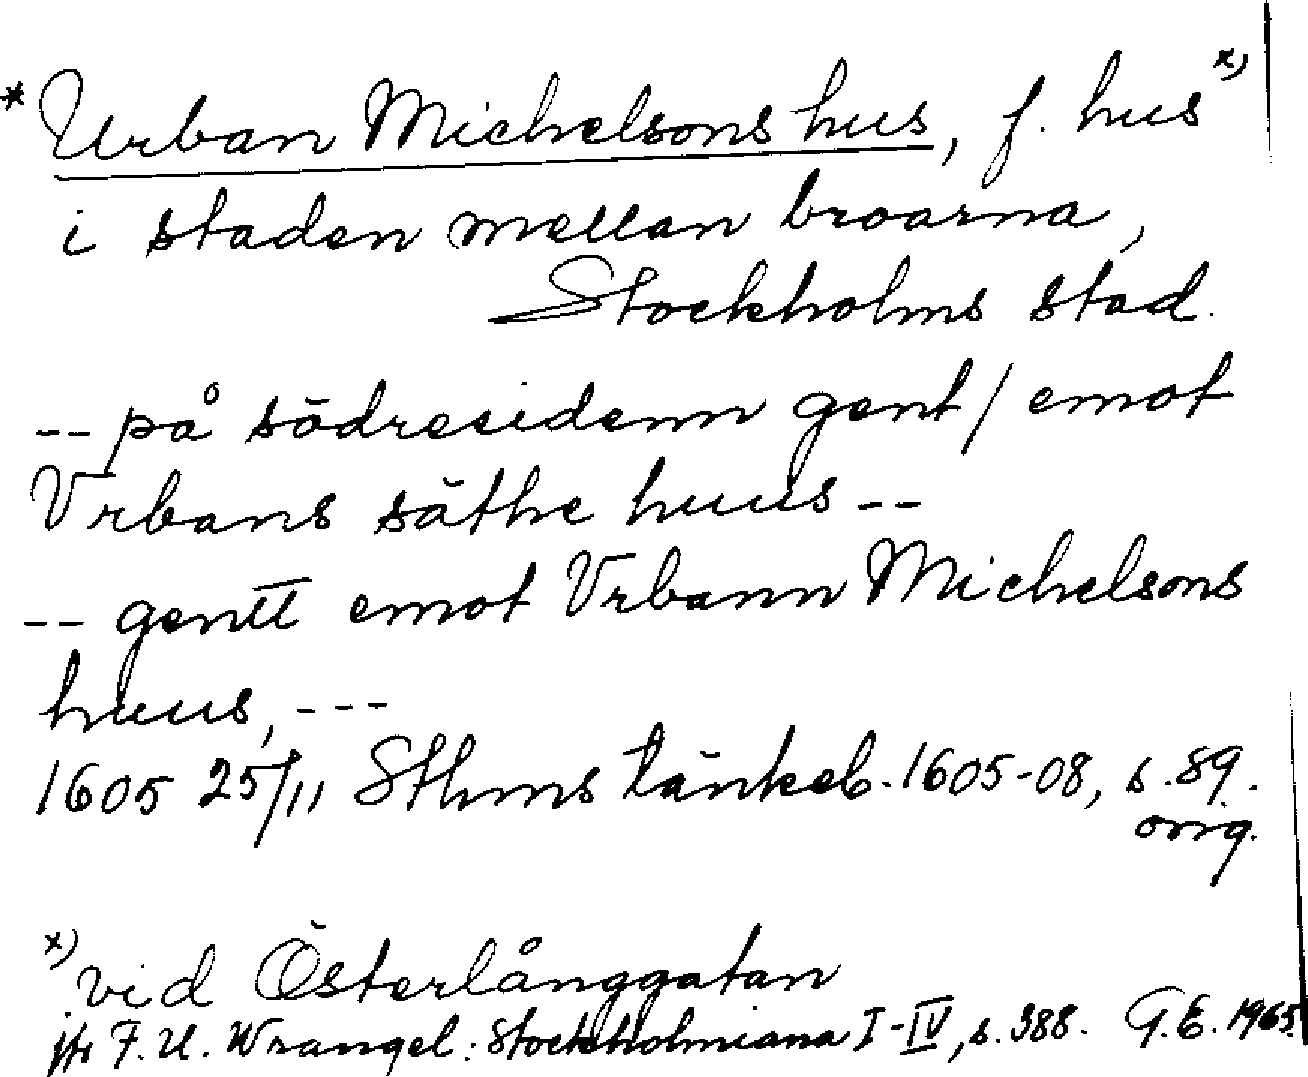 * Urban Michelsons hus, f. hus x)
i staden mellan broarna,
Stockholms stad.
-- på södresidenn gent/emot
Vrbans säthe huus --
-- gentt emot Vrbann Michelsons
huus, ---
1605 25/11 Sthms tänkeb. 1605-08, s. 89.
orig.
x) vid Österlånggatan
jfr F. U. Wrangel: Stockholmiana I-IV, s. 388. G.E. 1965.